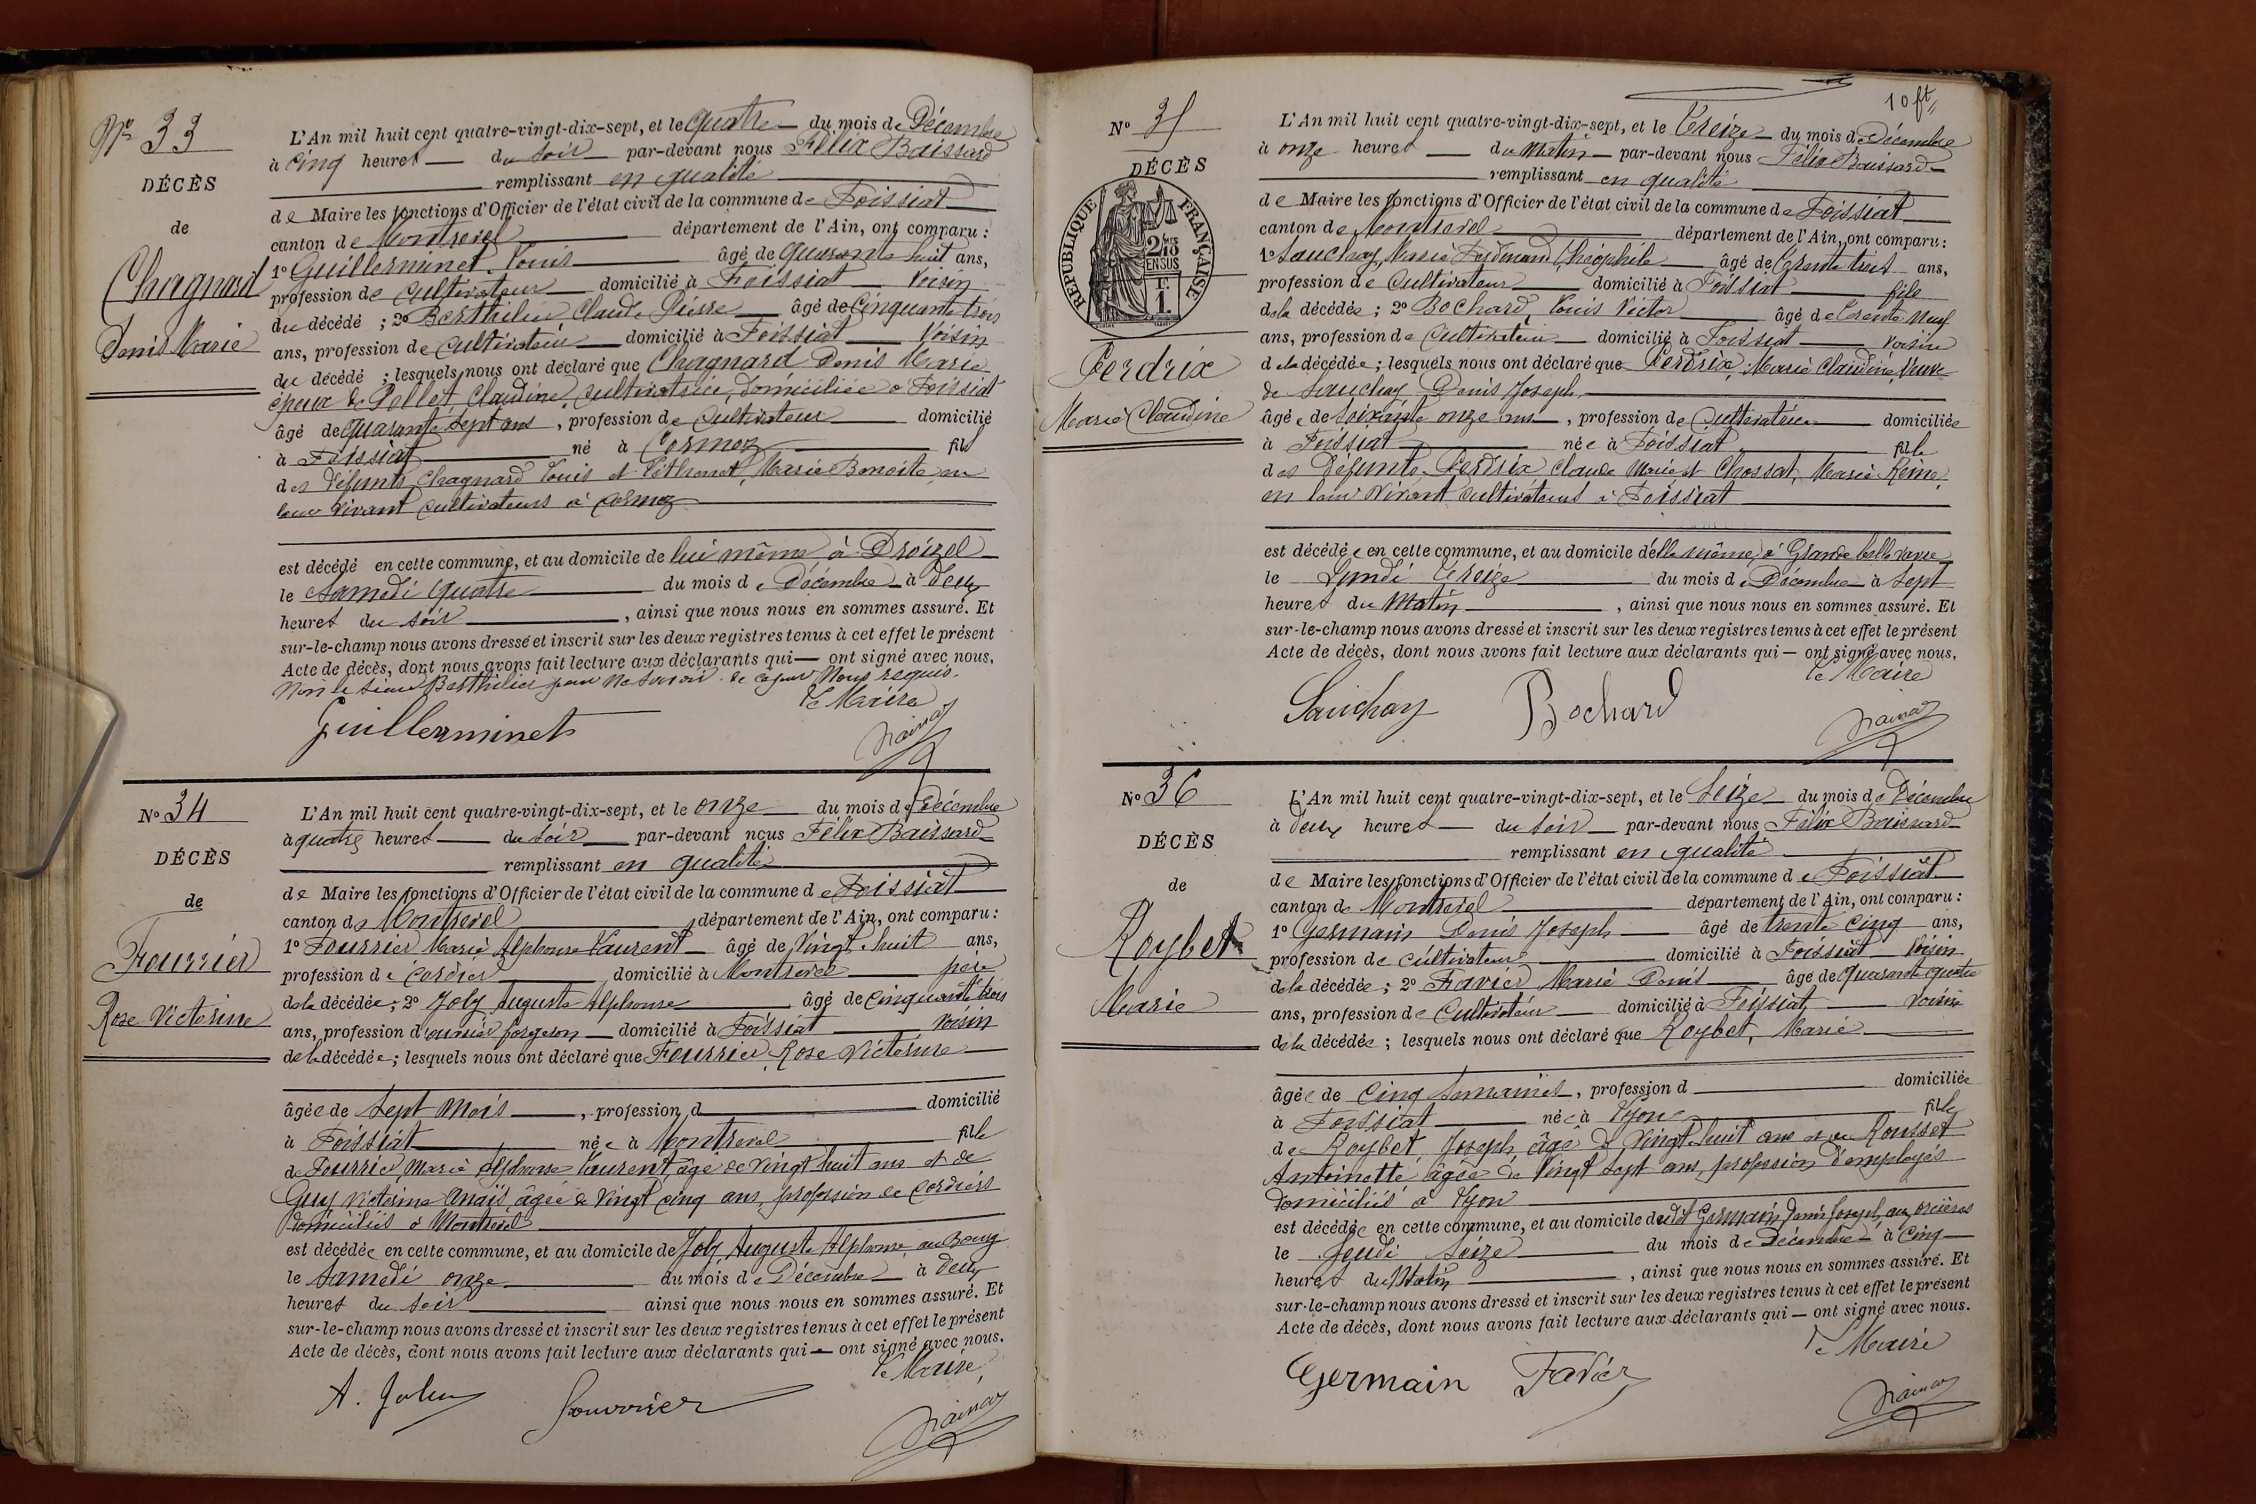 Nº 33
DÉCÈS
de
Chagnard
Denis Marie
L'An mil huit cent quatre-vingt-dix-sept, et le quatre du mois de Décembre
à cinq heures du soir par-devant nous Félix Baissard
remplissant en qualité
de Maire les fonctions d'Officier de l'état civil de la commune de Foissiat
canton de Montrevel département de l'Ain, ont comparu :
1º Guillerminet Louis âgé de quarante huit ans,
profession de cultivateur domicilié à Foissiat voisin
du décédé ; 2º Berthilier Claude Pierre âgé de cinquante trois
ans, profession de cultivateur domicilié à Foissiat voisin
du décédé ; lesquels nous ont déclaré que Chagnard Denis Marie
époux de Pellet Claudine, cultivatrice, domiciliée à Foissiat
âgé de quarante sept ans, profession de cultivateur domicilié
à Foissiat né à Cormoz fils
des défunts Chagnard Louis et Marie Benoite, en
leur vivant cultivateurs à Cormoz
est décédé en cette commune, et au domicile de lui même à Droizel
le samedi quatre du mois de Décembre à deux
heures du soir, ainsi que nous nous en sommes assuré. Et
sur-le-champ nous avons dressé et inscrit sur les deux registres tenus à cet effet le présent
Acte de décès, dont nous avons fait lecture aux déclarants qui ont signé avec nous,
Non le sieur Berthilier pour ne savoir de ce par nous requis.
Le Maire
Guillerminet
Nº 34
DÉCÈS
de
Fourrier
Rose Victorine
L'An mil huit cent quatre-vingt-dix-sept, et le onze du mois de Décembre
à quatre heures du soir par-devant nous Félix Baissard
remplissant en qualité
de Maire les fonctions d'Officier de l'état civil de la commune de Foissiat
canton de Montrevel département de l'Ain, ont comparu :
1º Fourrier Marie Alphonse Laurent âgé de vingt huit ans,
profession de cordier domicilié à Montrevel père
de la décédée ; 2º Joly Auguste Alphonse âgé de cinquante trois
ans, profession d'ouvrier forgeron domicilié à Foissiat voisin
de la décédée ; lesquels nous ont déclaré que Fourrier Rose Victorine
âgée de sept mois, profession d domicilié
à Foissiat née à Montrevel fille
de Fourrier Marie Alphonse Laurent, âgé de vingt huit ans et de
Guy Victorine Anaïs, âgée de vingt cinq ans, profession de cordiers
domiciliés à Montrevel
est décédée en cette commune, et au domicile de Joly Auguste Alphonse au Bourg
le samedi onze du mois de Décembre à deux
heures du soir ainsi que nous nous en sommes assuré. Et
sur-le-champ nous avons dressé et inscrit sur les deux registres tenus à cet effet le présent
Acte de décès, dont nous avons fait lecture aux déclarants qui ont signé avec nous.
Le Maire,
A. Joly
10 ft
Nº 35
DÉCÈS
RÉPUBLIQUE FRANÇAISE
2/10 EN SUS
F. 1.
Perdrix
Marie Claudine
L'An mil huit cent quatre-vingt-dix-sept, et le treize du mois de Décembre
à onze heures du matin par-devant nous Félix Baissard
remplissant en qualité
de Maire les fonctions d'Officier de l'état civil de la commune de Foissiat
canton de Montrevel département de l'Ain, ont comparu :
1º Sauchay, Marie Ferdinand Théophile âgé de trente trois ans,
profession de cultivateur domicilié à Foissiat fils
de la décédée ; 2º Bochard, Louis Victor âgé de trente neuf
ans, profession de cultivateur domicilié à Foissiat voisin
de la décédée ; lesquels nous ont déclaré que Perdrix, Marie Claudine, veuve
de Sauchay Denis Joseph,
âgée de soixante onze ans, profession de cultivatrice domiciliée
à Foissiat née à Foissiat fille
des défunts Perdrix Claude Marie et Chossat, Marie Reine,
en leur vivant cultivateurs à Foissiat
est décédée en cette commune, et au domicile d'elle même, à Grande
le Lundi treize du mois de Décembre à sept
heures du matin, ainsi que nous nous en sommes assuré. Et
sur-le-champ nous avons dressé et inscrit sur les deux registres tenus à cet effet le présent
Acte de décès, dont nous avons fait lecture aux déclarants qui ont signé avec nous,
Le Maire
Sauchay Bochard
Nº 36
DÉCÈS
de
Roybet
Marie
L'An mil huit cent quatre-vingt-dix-sept, et le seize du mois de Décembre
à deux heures du soir par-devant nous Félix Baissard
remplissant en qualité
de Maire les fonctions d'Officier de l'état civil de la commune de Foissiat
canton de Montrevel département de l'Ain, ont comparu :
1º Germain Denis Joseph âgé de trente cinq ans,
profession de cultivateur domicilié à Foissiat voisin
de la décédée ; 2º Favier Marie Denis âgé de quarante quatre
ans, profession de cultivateur domicilié à Foissiat voisin
de la décédée ; lesquels nous ont déclaré que Roybet, Marie
âgée de cinq semaines, profession d domiciliée
à Foissiat née à Lyon fille
de Roybet, Joseph, âgé de vingt huit ans et de Rousset
Antoinette âgée de vingt sept ans, profession d'employés
domiciliés à Lyon
est décédée en cette commune, et au domicile dudit Germain Denis Joseph, aux
le jeudi seize du mois de Décembre à cinq
heures du matin, ainsi que nous nous en sommes assuré. Et
sur-le-champ nous avons dressé et inscrit sur les deux registres tenus à cet effet le présent
Acte de décès, dont nous avons fait lecture aux déclarants qui ont signé avec nous.
Le Maire
Germain Favier